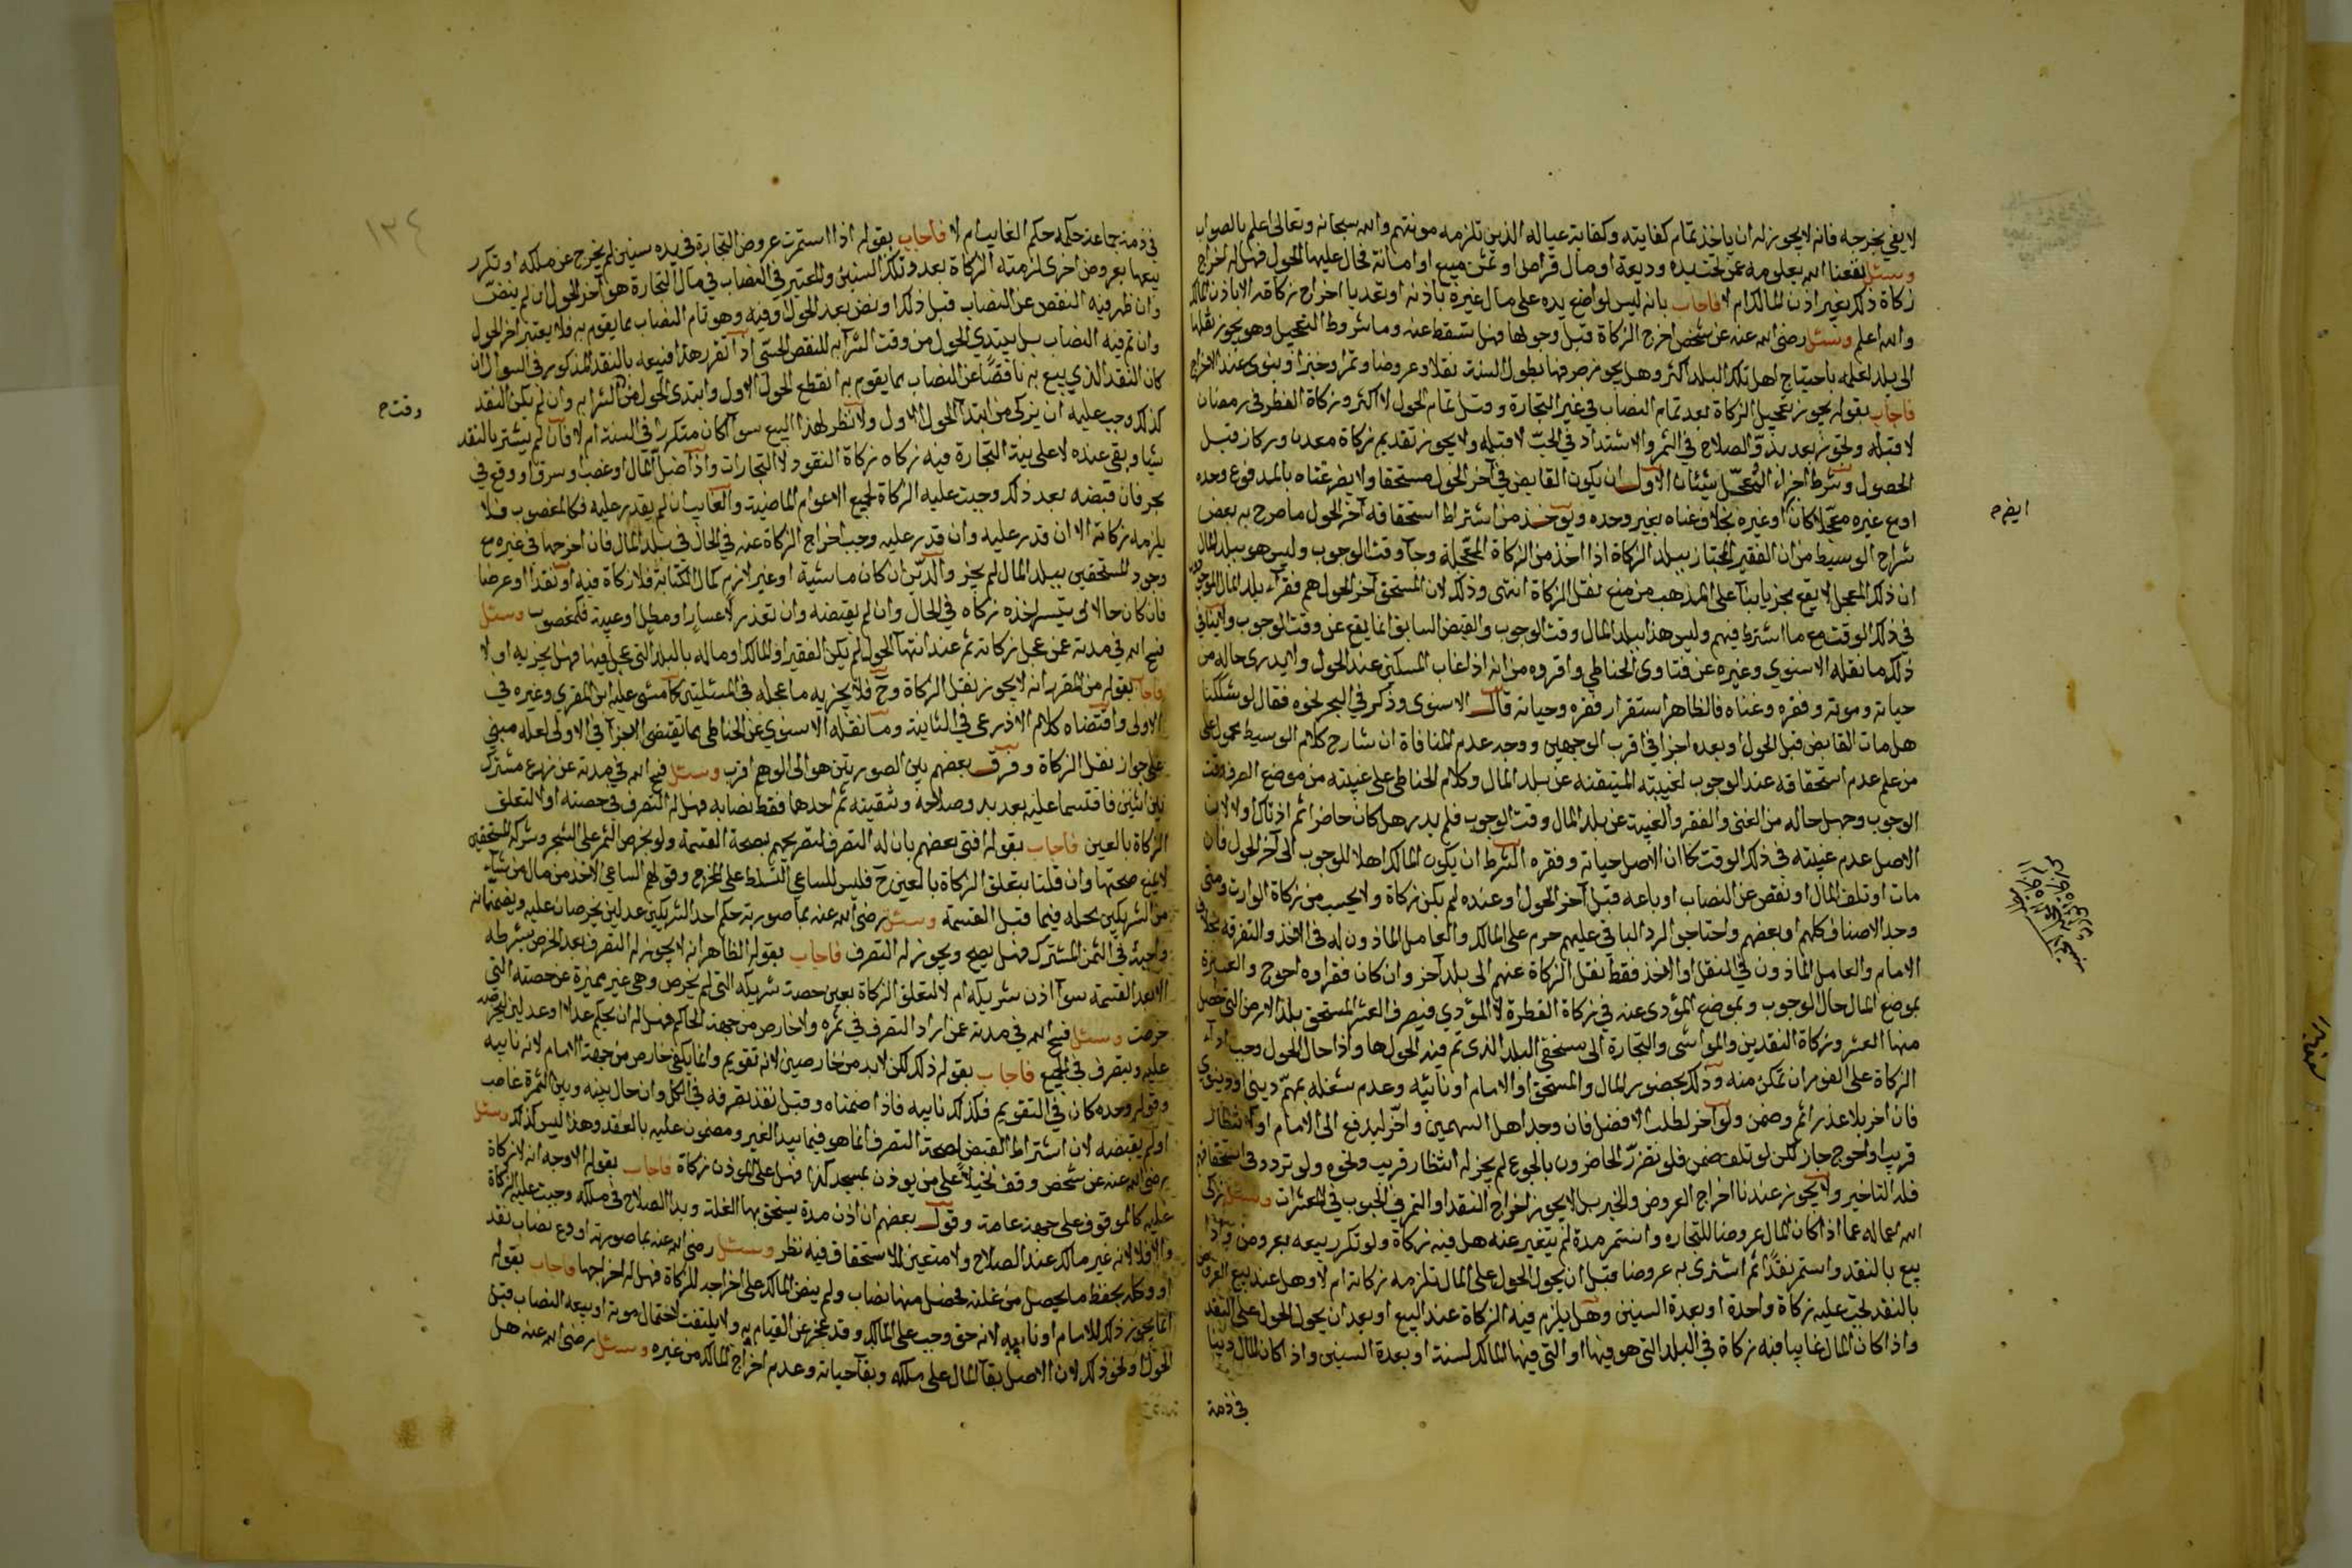 لا يفي بخرجه فانه لا يجوز له ان ياخذ تمام كفايته وكفاية عياله الذين تلزمه مونتهم والله سبحانه وتعالى اعلم بالصواب
وسئل نفعنا الله بعلومه عمن تحت يده وديعة او مال قراض او ثمن مبيع او امانة فحال عليها الحول فهل له اخراج
زكاة ذلك بغير اذن المالك ام لا فاجاب بانه ليس لواضع يده على مال غيره باذنه او تعديا اخراج زكاته الا باذن المالك
والله اعلم وسئل رضي الله عنه عن شخص اخرج الزكاة قبل وجوبها فهل تسقط عنه وما شروط التعجيل وهو يجوز نقلها
الى بلد لعلمه باحتياج اهل تلك البلد اكثر وهل يجوز صرفها بطول السنة نقدا وعروضا وتمرا وخبزا وينوي عند الاخراج
فاجاب بقوله يجوز تعجيل الزكاة بعد تمام النصاب في غير التجارة وقبل تمام الحول لا اكثر وزكاة الفطر في رمضان
لا قبله ولحوز بعد بدو الصلاح في الثمر والاشتداد في الحب لا قبله ولا يجوز تقديم زكاة معدن وركاز قبل
الحصول وشرط اجزاء المعجل شيئان الاول ان يكون القابض في آخر الحول مستحقا ولا يضر غناه بالمدفوع وحده
او مع غيره معجلا كان او غيره بخلاف غناه بغيره وحده ويوخذ من اشتراط استحقاقه آخر الحول ما صرح به بعض
شراح الوسيط من ان الفقير المجتاز ببلد الزكاة اذا اخذ من الزكاة المعجلة وجآ وقت الوجوب وليس هو ببلد المال
ان ذلك المعجل لا يقع مجزيا بنآ على المذهب من منع نقل الزكاة انتهى وذلك لان المستحق آخر الحول هم فقرآء بلد المال
في ذلك الوقت مع ما اشترط فيهم وليس هذا ببلد المال وقت الوجوب والقبض السابق انما يقع عن وقت الوجوب ولا ينافي
ذلك ما نقله الاسنوي وغيره عن فتاوى الحناطي واقروه من انه اذا غاب المسكين عند الحول ولا يدرى حاله من
حياته وموته وفقره وغناه فالظاهر استقرار فقره وحياته قال الاسنوي وذكر في البحر نحوه فقال لو شككنا
هل مات القابض قبل الحول او بعده اجزا في اقرب الوجهين ووجه عدم المنافاة ان شارح كلام الوسيط محمول على
من علم عدم استحقاقه عند الوجوب لغيبته المتيقنة عن بلد المال وكلام الحناطي على غيبته من موضع الصرف وقت
الوجوب وجهل حاله من الغنى والفقر والغيبة عن بلد المال وقت الوجوب فلم يدر هل كان حاضرا ثم اذ ذاك اولا لان
الاصل عدم غيبته في ذلك الوقت كما ان الاصل حياته وفقره الشرط ان يكون المالك اهلا للوجوب الى آخر الحول فان
مات او تلف المال او نقص عن النصاب او باعه قبل آخر الحول او عنده لم يكن زكاة ولا يحسب من زكاة الوارث ومتى
وجد الاصناف كلهم او بعضهم واحتاجوا الرد الباقي عليهم حرم على المالك والعامل الماذون له في الاخذ والتفرقة بخلاف
الامام والعامل الماذون في النقل او الاخذ فقط نقل الزكاة عنهم الى بلد آخر وان كان فقراوه احوج والعبرة
بموضع المال حال الوجوب وبموضع المؤدى عنه في زكاة الفطرة لا المؤدي فيصرف العشر المستحق بلد الارض التي حصل
منها العشر وزكاة النقدين والمواشي والتجارة الى مستحقي البلد الذي تم فيه الحول ها واذا حال الحول وجب ادآء
الزكاة على الفور ان تمكن منه وذلك بحضور المال والمستحق او الامام او نائبه وعدم شغله بمهم ديني او دنيوي
فان اخر بلا عذر اثم وضمن ولو اخر لطلب الافضل فان وجد اهل السهمين واخر ليدفع الى الامام او لانتظار
قريب او احوج جاز لكن لو تلف ضمن فلو تضرر الحاضرون بالجوع لم يجز له انتظار قريب ونحوه ولو تردد في استحقاقهم
فله التاخير ولا يجوز عندنا اخراج العروض والخبز بل لا يجوز اخراج النقد او التمر في الحبوب في المعشرات وسئل زكى
الله اعماله عما اذا كان المال عروضا للتجاره واستمر مدة لم يتغير عنه هل فيه زكاة ولو تكرر بيعه بعروض واذا
بيع بالنقد واستمر نقدا ثم اشترى به عروضا قبل ان يحول الحول على المال تلزمه زكاته ام لا وهل عند بيع العروض
بالنقد تجب عليه زكاة واحدة او بعدة السنين وهل يلزم فيه الزكاة عند البيع او بعد ان يحول الحول على النقد
واذا كان المال غايبا فيه زكاة في البلد التي هو فيها او التي فيها المالك لسنة او بعدة السنين واذا كان المال دينا
في ذمة
ايض م
١٣٤
في ذمة جماعة حكمه حكم الغايب ام لا فاجاب بقوله اذا استمرت عروض التجارة في يده سنين لم يخرج عن ملكه او تكرر
بيعها بعروض اخرى لزمته الزكاة بعدد تلك السنين والمعتبر في النصاب في مال التجارة هو آخر الحول ان لم ينض
وان ظهر فيه النقص عن النصاب قبل ذلك او نض بعد الحول او فيه وهو تام النصاب بما يقوم به فلا يعتبر اخر الحول
وان تم فيه النصاب بل يبتدي الحول من وقت الشرآ به للنقص الحسي اذا تقرر هذا فبيعه بالنقد المذكور في السوال ان
كان النقد الذي بيع به ناقصا عن النصاب بما يقوم به انقطع الحول الاول وابتدى الحول من الشرا به وان لم يكن النقد
كذلك وجب عليه ان يزكي من ابتدآ الحول الاول ولا نظر لهذا البيع سوآ كان متكررا في السنة ام لا فان لم يشتر بالنقد
شيا وبقي عنده لا على نية التجارة فيه زكاه زكاة النقود لا التجارات واذا ضل المال او غصب او سرق او وقع في
بحر فان قبضه بعد ذلك وجبت عليه الزكاة لجميع الاعوام الماضية والغايب ان لم يقدر عليه فكالمغصوب فلا
يلزمه زكاته الا ان قدر عليه وان قدر عليه وجب اخراج الزكاة عنه في الحال في بلد المال فان اخرجها في غيره مع
وجود المستحقين ببلد المال لم يجز والدين ان كان ماشية او غير لازم كمال الكتابة فلا زكاة فيه او نقدا او عرضا
فان كان حالا لى يتيسر اخذه زكاه في الحال وان لم يقبضه وان تعذر لاعسار او مطل او غيبة فكمغصوب وسئل
فسح الله في مدته عمن عجل زكاته ثم عند انتهآ الحول لم يكن الفقير او المالك او ماله بالبلد التي عجل فيها فهل يجزيه او لا
فاجاب بقوله من المقرر انه لا يجوز نقل الزكاة وح فلا يجزيه ما عجله في المسئلتين كما مشى عليه ابن المقري وغيره في
الاولى واقتضاه كلام الاذرعي في الثانية وما نقله الاسنوي عن الحناطي بما تقتضي الاجزآ في الاولى لعله مبني
على جواز نقل الزكاة وفرق بعضهم بين الصورتين هو الى الوهم اقرب وسئل فسح الله في مدته عن زرع مشترك
بين اثنين فاقتسما عليه بعد بدو صلاحه وتنقيته تم احدها فقط نصابه فهل له التصرف في حصته او لا لتعلق
الزكاة بالعين فاجاب بقوله افتى بعضهم بان له التصرف لتصريحهم بصحة القسمة ولو بخرص الثمر على الشجر وشركة المستحقين
لا يمنع صحتها وان قلنا بتعلق الزكاة بالعين ح فليس للساعي التسلط على المخرج وقولهم الساعي الاخذ من مال من شاء
من الشريكين محله فيما قبل القسمة وسئل رضي الله عنه بما صورته حكم احد الشريكين عدلين يخرصان عليه ويضمنانه
واجبه في الثمن المشترك فهل يصح ويجوز له التصرف فاجاب بقوله الظاهر انه لا يجوز له التصرف بعد الخرص بشرطه
الا بعد القسمة سوآ اذن شريكه ام لا لتعلق الزكاة بعين حصت شريكه التي لم يخرص وهي غير مميزة عن حصته التي
خرصت وسئل فسح الله في مدته عن اراد التصرف في ثمره ولا خارص من جهة الحاكم فهل له ان يحكم عدلا او عدلين ليخرص
عليه ويتصرف في الجميع فاجاب بقوله ذلك لكن لا بد من خارصين لانه تقويم وانما يكفي خارص من جهة الامام لانه نايبه
وقوله وحده كاف في التقويم فكذلك نايبه فاذا ضمناه وقبل نفذ تصرفه في الكل وان حال بينه وبين الثمرة غاصب
او لم يقبضه لان اشتراط القبض لصحة التصرف انما هو فيما بيد الغير ومضمون عليه بالعقد وهذا ليس كذلك وسئل
رضي الله عنه عن شخص وقف نخيلا على من يوذن بمسجد كذا فهل على الموذن زكاة فاجاب بقوله الاوجه انه لا زكاة
عليه كالموقوف على جهة عامة وقول بعضهم ان اذن مدة يستحق بها الغلة وبدا الصلاح في ملكه وجبت عليه الزكاة
والا فلا لانه غير مالك عند الصلاح ولا متعين للاستحقاق فيه نظر وسئل رضي الله عنه بما صورته اودع نصاب نقد
او وكله بحفظ ما يحصل من غلته فحصل منها نصاب ولم ينض المالك على اخراجه للزكاة فهل له اخراجها فاجاب بقوله
انما يجوز ذلك للامام او نايبه لانه حق وجب على المالك وقد عجز عن القيام به ولا يلتفت لاحتمال موته او بيعه النصاب قبل
الحول او نحو ذلك لان الاصل بقآ المال على ملكه وبقآ حياته وعدم اخراج المالك من غيره وسئل رضي الله عنه هل
وقت م